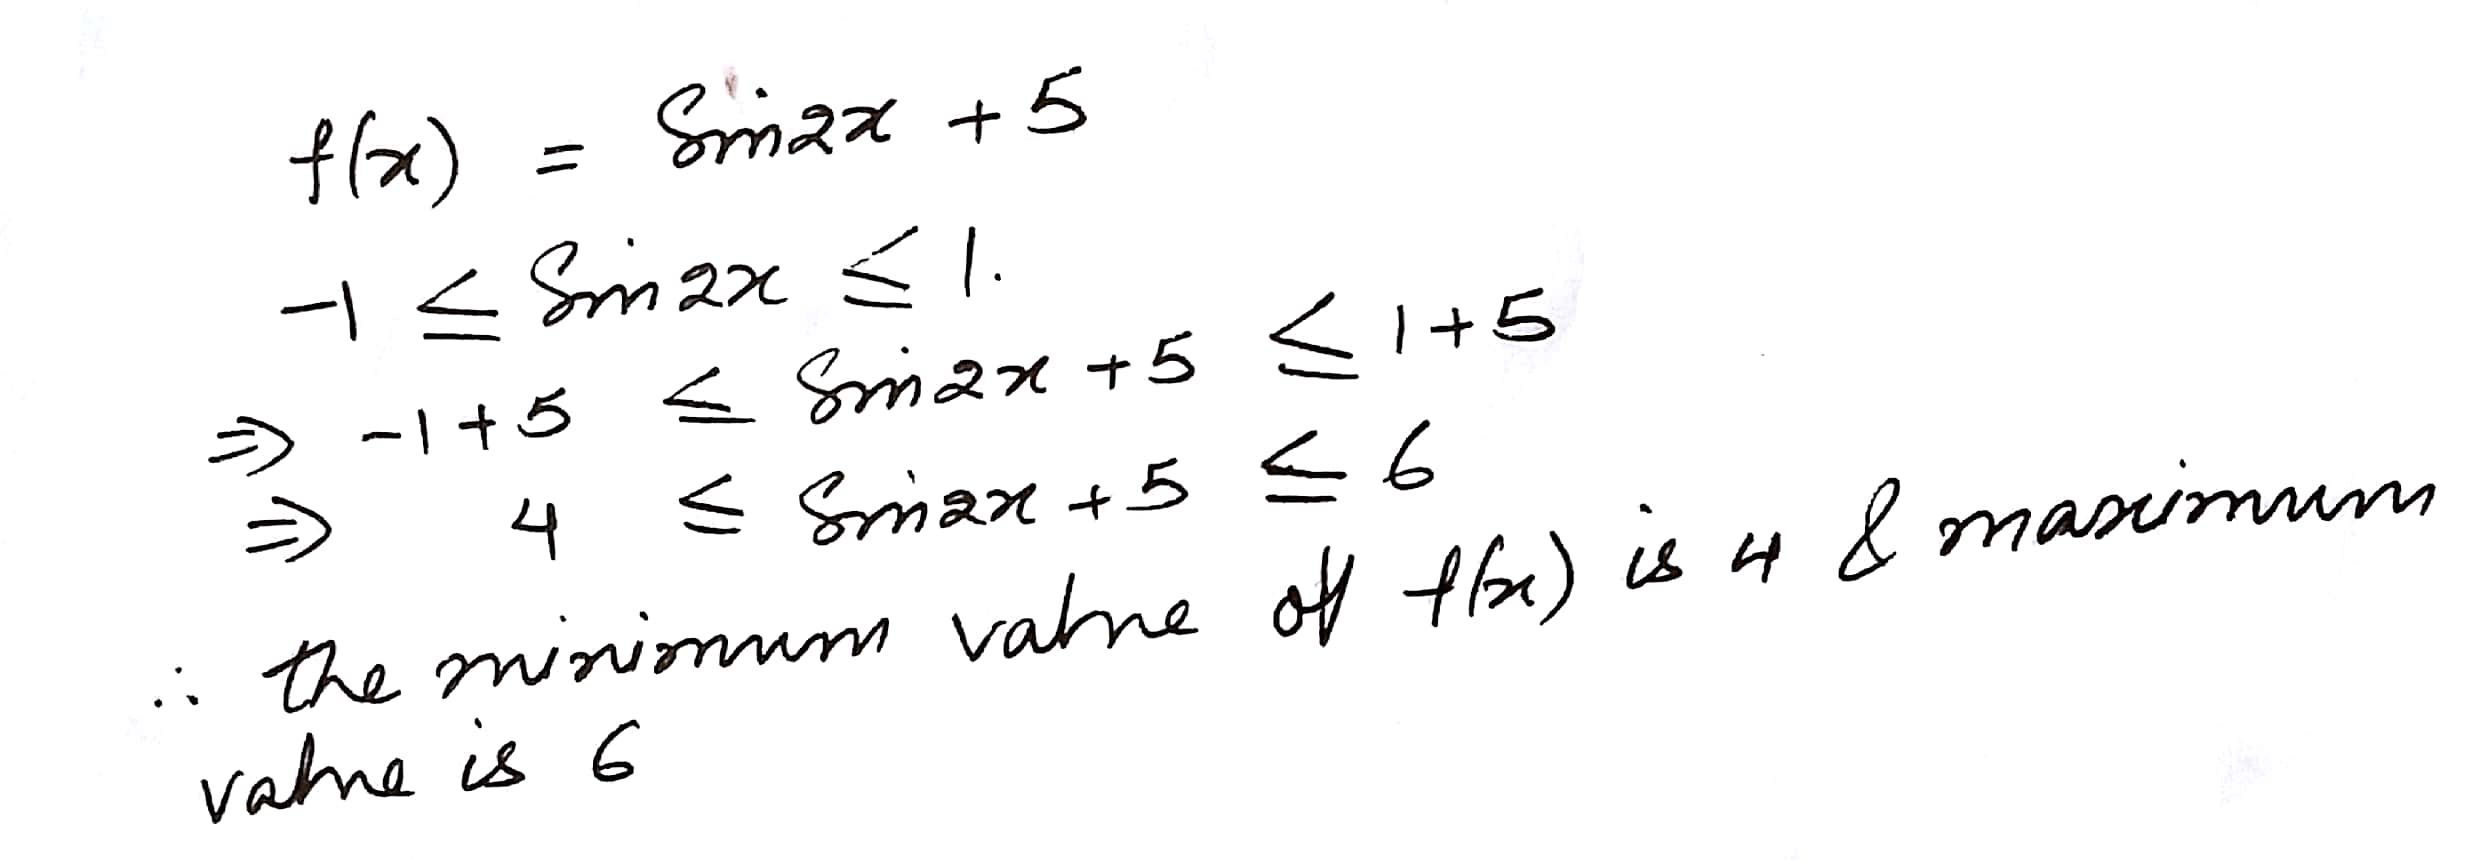 f(x) = Sin2x + 5
-1 ≤ Sin2x ≤ 1.
⇒ -1+5 ≤ Sin2x +5 ≤ 1+5
⇒ 4 ≤ Sin2x +5 ≤ 6
∴ the minimum value of f(x) is 4 & maximum
value is 6